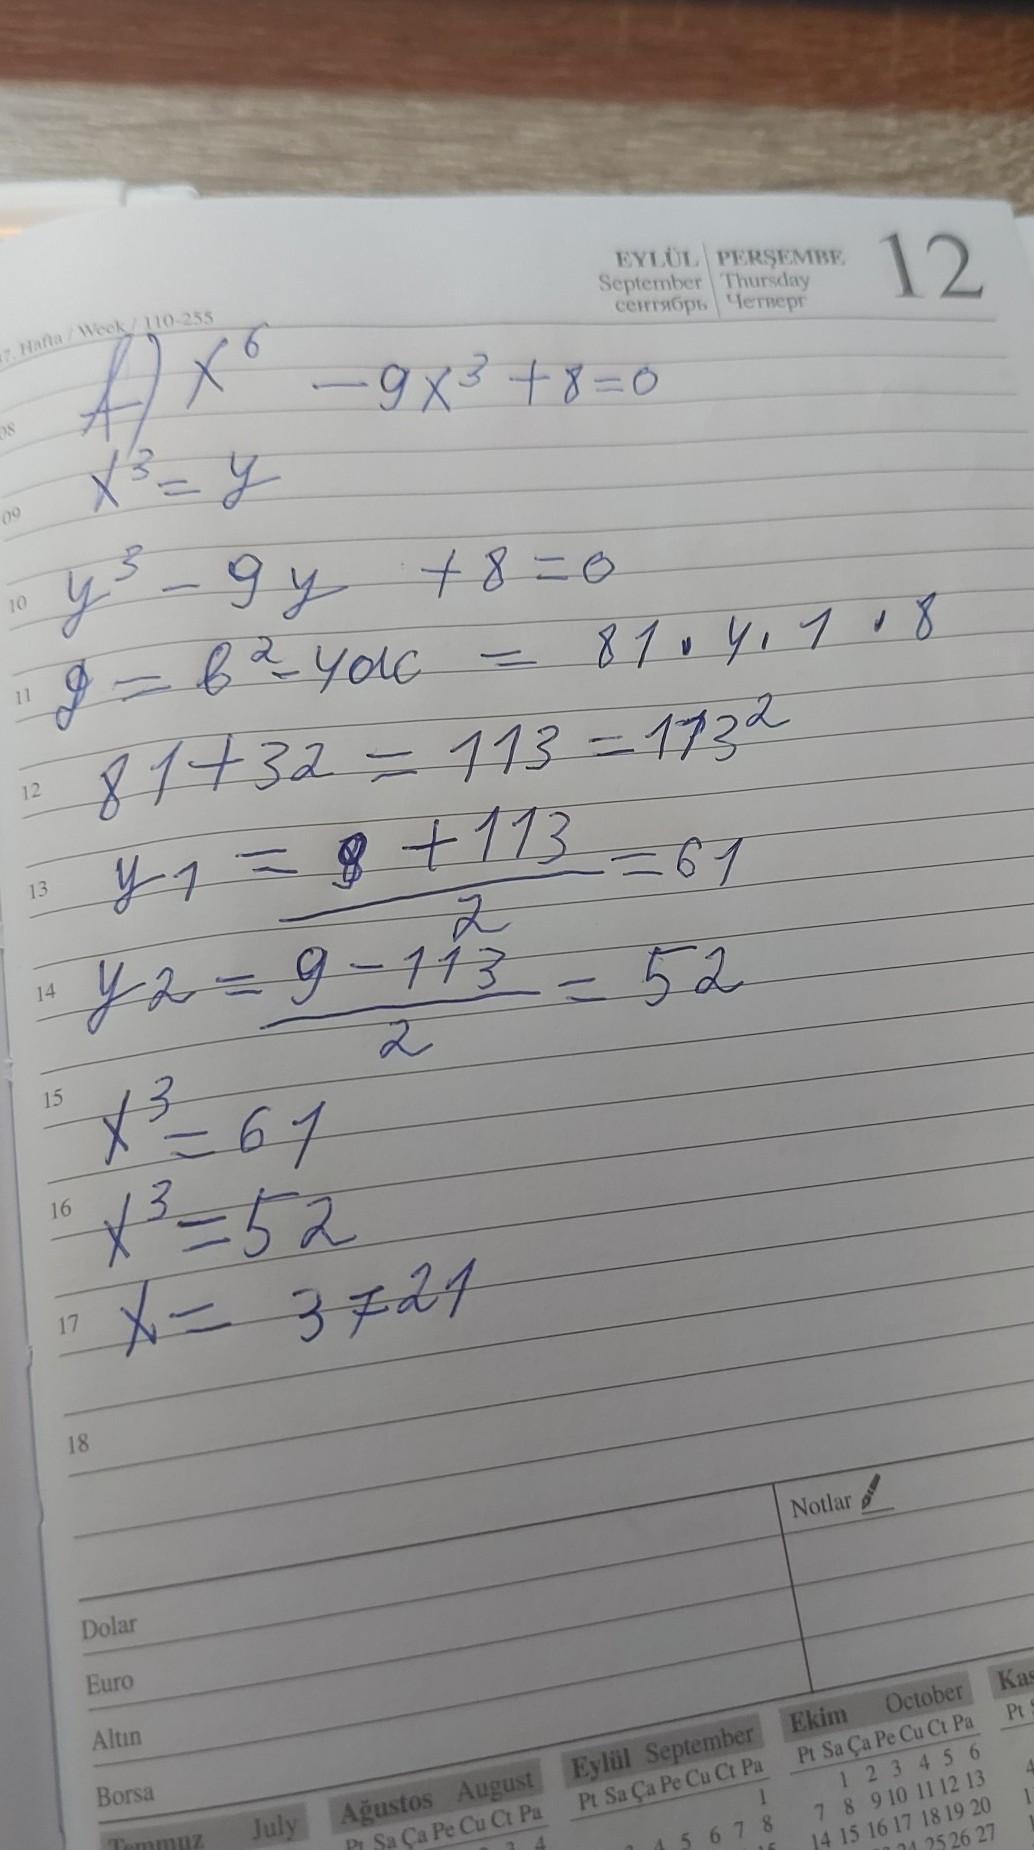 EYLÜL PERŞEMBE 12
September Thursday
сентябрь Четверг
7. Hafta / Week / 110-255
A) x⁶ - 9x³ + 8 = 0
08
x³ = y
09
y³ - 9y + 8 = 0
10
D = b² - 4ac = 81 · 4 · 1 · 8
11
81 + 32 = 113 = 113²
12
y1 = 9 + 113 / 2 = 61
13
y2 = 9 - 113 / 2 = 52
14
x³ = 61
15
x³ = 52
16
x = 3721
17
18
Notlar
Dolar
Euro
Altın
Borsa
Temmuz July
Ağustos August
Pt Sa Ça Pe Cu Ct Pa
Eylül September
Pt Sa Ça Pe Cu Ct Pa
1
4 5 6 7 8
Ekim October
Pt Sa Ça Pe Cu Ct Pa
1 2 3 4 5 6
7 8 9 10 11 12 13
14 15 16 17 18 19 20
25 26 27
Kas
Pt